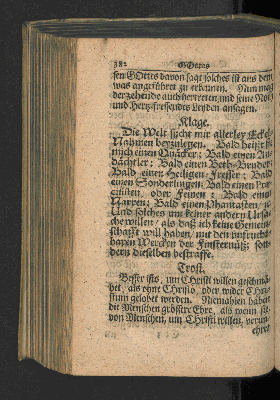 382 GOttes
sen GOttes davon sagt solches ist aus dem
was angeführet zu erkennen. Nun mag
der zehende auch hertreten und seine Noth
und Hertz-fressendes Leyden ansagen.
Klage.
Die Welt sucht mir allerley Eckel-
Nahmen beyzulegen. Bald heißt sie
mich einen Quäcker; Bald einen An-
dächtler; Bald einen Beth-Bruder;
Bald einen Heiligen-Fresser; Bald
einen Sonderlingen; Bald einen
oder Feinen; Bald einen
Narren; Bald einen Phantasten,
Und solches um keiner andern Ursa-
che willen, als daß ich keine Gemein-
schafft will haben, mit den unfrucht-
baren Wercken der Finsternüß, son-
dern dieselben bestraffe.
Trost.
Besser ists, um Christi willen geschmä-
het, als ohne Christo, oder wider Chri-
stum gelobet werden. Niemahlen haben
die Menschen grössere Ehre, als wenn sie
von Menschen, um Christi willen, verun-
ehret